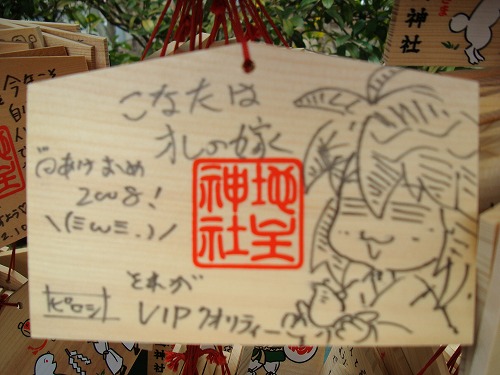 こなたは
オレの嫁く
向あけおめ
2008!
\(ΞωΞ.)/
地主
神社
それが
VIPクオリティー
ピロシ
神社
今年こそ